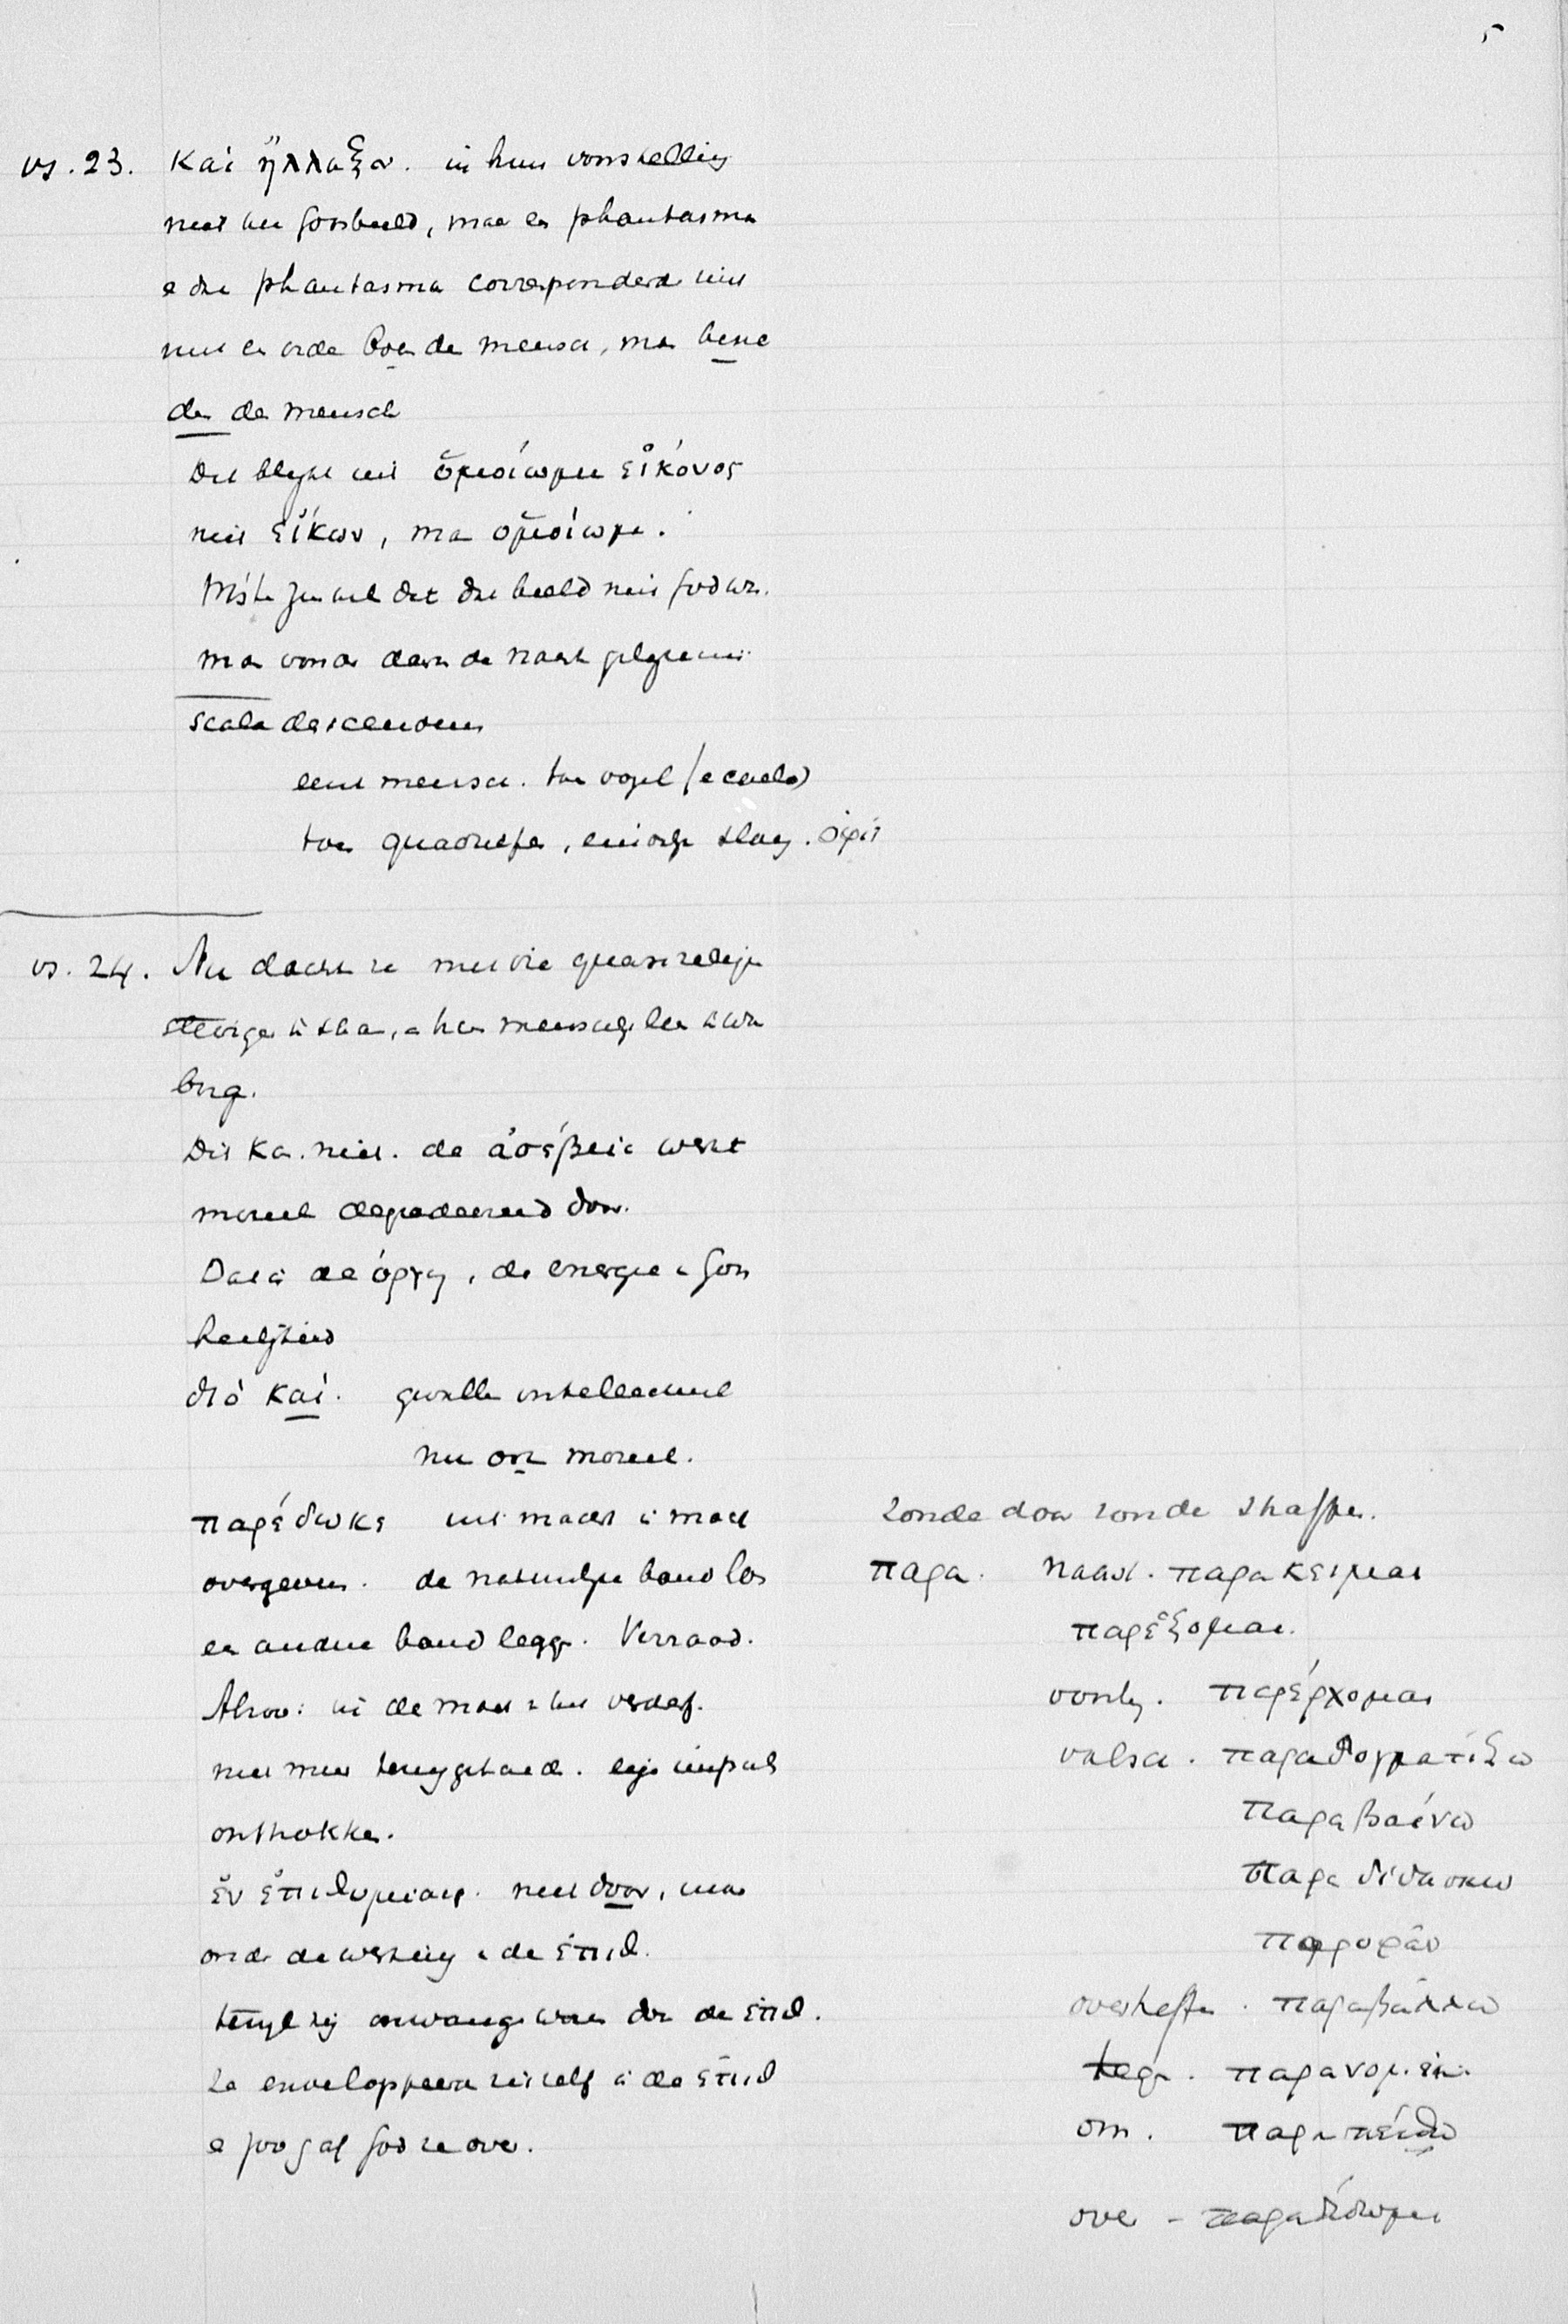 5
vs. 23. καὶ ἤλλαξαν. in hun voorstelling
niet het Godsbeeld, maar en phantasma
e die phantasma correspondeerde niet
met en orde boven de mensch, maar bene
den de mensch
Dit blijkt uit ὁμοίωμα εἰκόνος
niet εἴκων, ma ὁμοίωμα.
Wiste zeer wel dat die beeld niet God was.
ma vonden daar de naaste gelijkenis
scala descendens
eerst mensch. toe vogel (e caelo)
toe quadrupes, eindelijk slang. ὄφις
vs. 24. Nu dacht ze met die quasi religie
stevige te staan, e hun menschelijk leven
Dit ka. niet. de ἀσέβεια werkt
moreel degradeerend door.
Dat is de ὀργή, de energie v Gods
heiligheid
διὸ καὶ. gevallen intellectueel
nu ook moreel.
παρέδωκε uit macht in macht
overgeven. de natuurlijke band los
en andere band leggen. Verraad.
Alzoo: in de macht v het verderf.
niet meer teruggehouden. eigen impuls
onttrokken.
ἐν ἐπιθυμίαις. niet door, maar
onder de werking v de ἐπιθ.
terwijl zij omvangen waren door de ἐπιθ.
Ze enveloppeeren zichzelf in de ἐπιθ
e zoo gaf God ze over.
zonde door zonde straffen.
παρα. naast. παρακειμαι
παρέξομαι.
voorbij. παρέρχομαι
valsch. παραδογματίζω
παραβαίνω
παραδιδασκω
παροράω
overtreffen. παραβάλλω
tegen. παρανομεῖν.
om. παραπείθω
over - παραδίδωμι